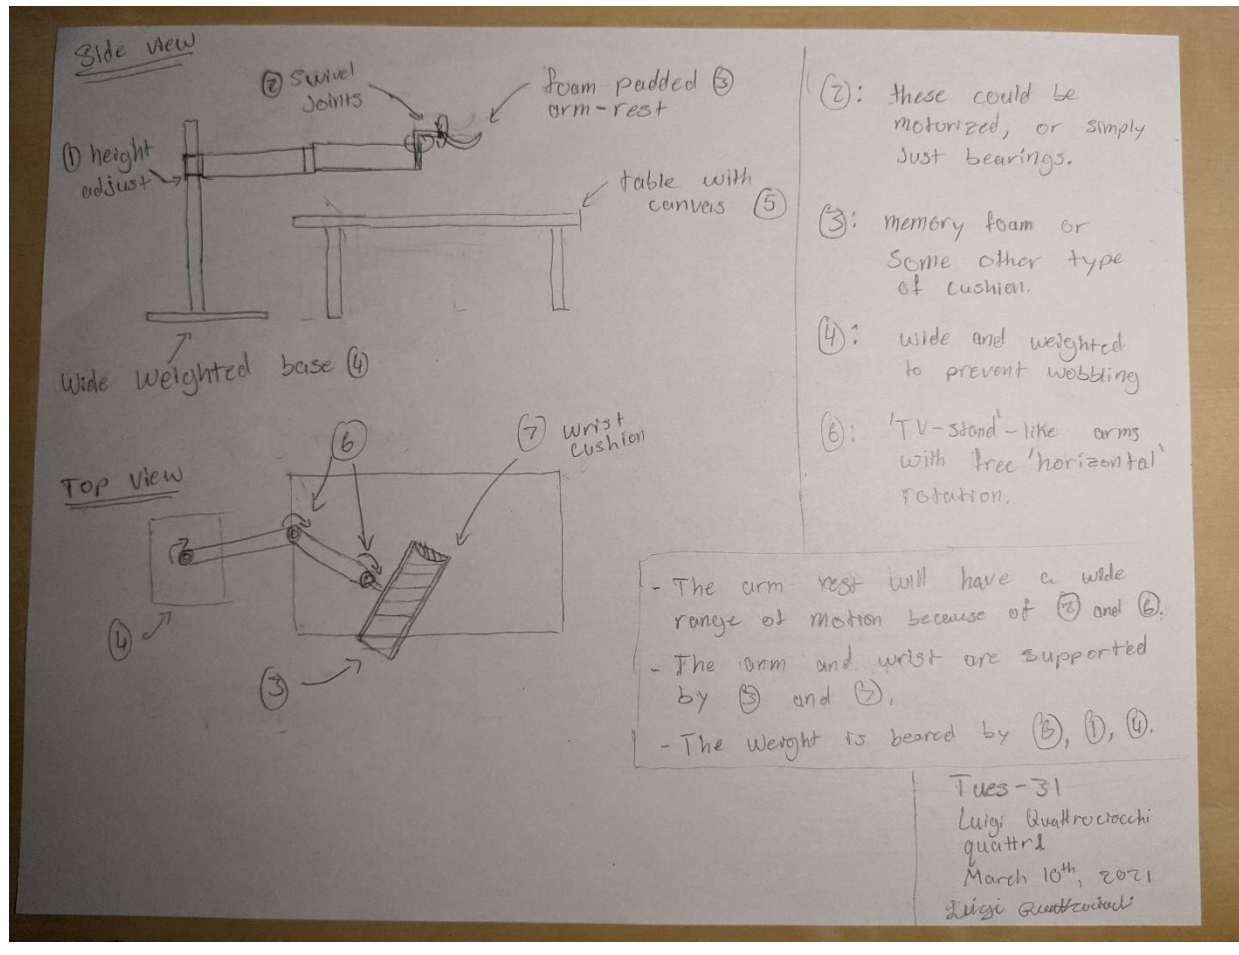 Side view
② Swivel
Joints
foam padded ③
arm-rest
① height
adjust
table with
canvas ⑤
Wide weighted base ④
Top view
⑥
⑦ wrist
cushion
④
③
②: these could be
motorized, or simply
just bearings.
③: memory foam or
some other type
of cushion.
④: wide and weighted
to prevent wobbling
⑥: 'TV-stand'-like arms
with free 'horizontal'
rotation.
- The arm rest will have a wide
range of motion because of ② and ⑥.
- The arm and wrist are supported
by ③ and ⑦.
- The weight is beared by ⑥, ①, ④.
Tues-31
Luigi Quattrociocchi
quattrl
March 10th, 2021
Luigi Quattrociocchi